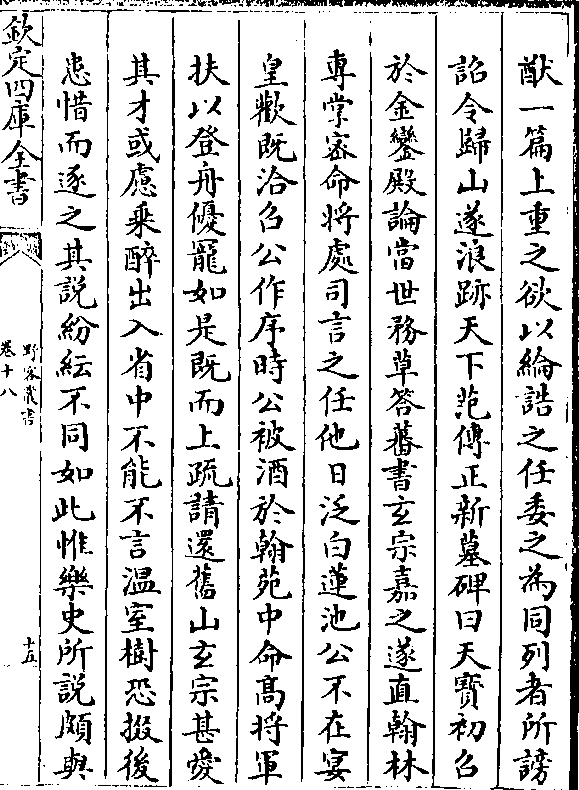 猷一篇上重之欲以綸誥之任委之為同列者所謗
詔令歸山遂浪跡天下范傳正新墓碑曰天寳初召
於金鑾殿論當世務草答蕃書玄宗嘉之遂直翰林
專掌宻命將處司言之任他日泛白蓮池公不在宴
皇歡既洽召公作序時公被酒於翰苑中命髙將軍
扶以登舟優寵如是既而上疏請還舊山玄宗甚愛
其才或慮乗醉出入省中不能不言温室樹恐掇後
患惜而逐之其説紛紜不同如此惟樂史所説頗與
欽定四庫全書
野客叢書
卷十八
十五